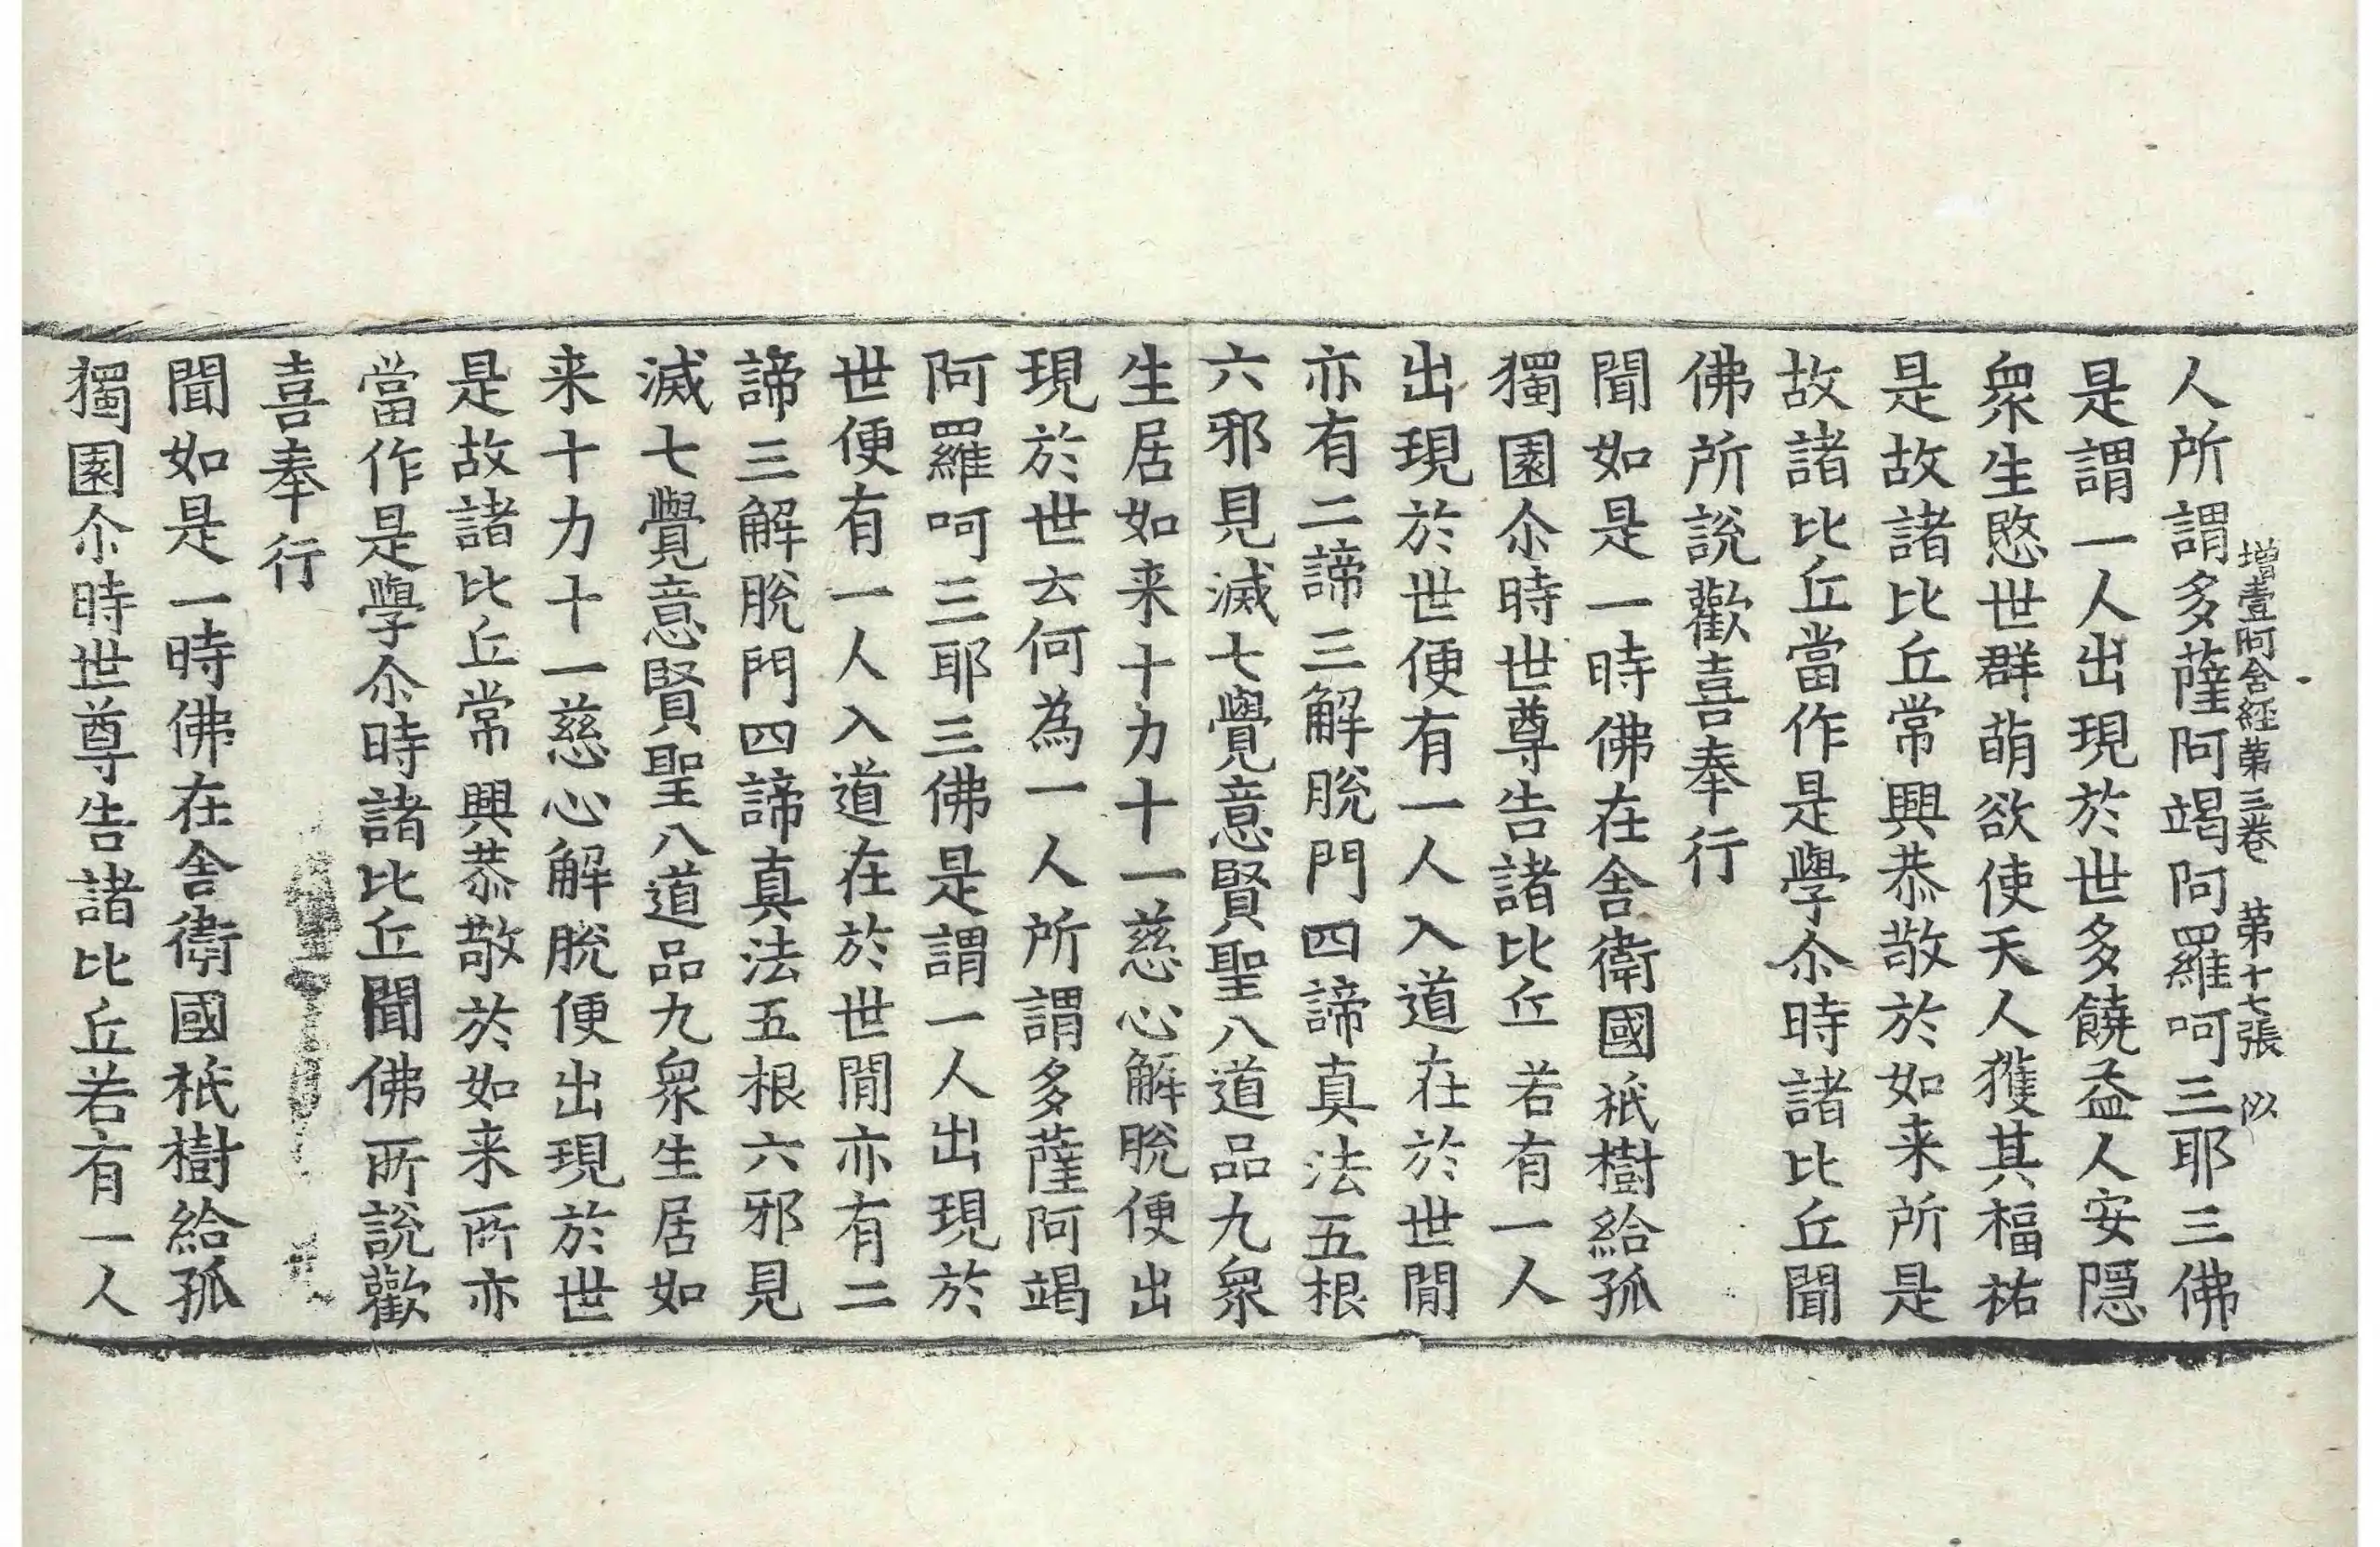 增壹阿含經第三卷 第十七張 似
人所謂多薩阿竭阿羅呵三耶三佛
是謂一人出現於世多饒益人安隱
衆生愍世群萌欲使天人獲其福祐
是故諸比丘常興恭敬於如来所是
故諸比丘當作是學尒時諸比丘聞
佛所說歡喜奉行
聞如是一時佛在舍衛國祇樹給孤
獨園尒時世尊告諸比丘若有一人
出現於世便有一人入道在於世間
亦有二諦三解脫門四諦真法五根
六邪見滅七覺意賢聖八道品九衆
生居如来十力十一慈心解脫便出
現於世云何為一人所謂多薩阿竭
阿羅呵三耶三佛是謂一人出現於
世便有一人入道在於世間亦有二
諦三解脫門四諦真法五根六邪見
滅七覺意賢聖八道品九衆生居如
来十力十一慈心解脫便出現於世
是故諸比丘常興恭敬於如来所亦
當作是學尒時諸比丘聞佛所說歡
喜奉行
聞如是一時佛在舍衛國祇樹給孤
獨園尒時世尊告諸比丘若有一人